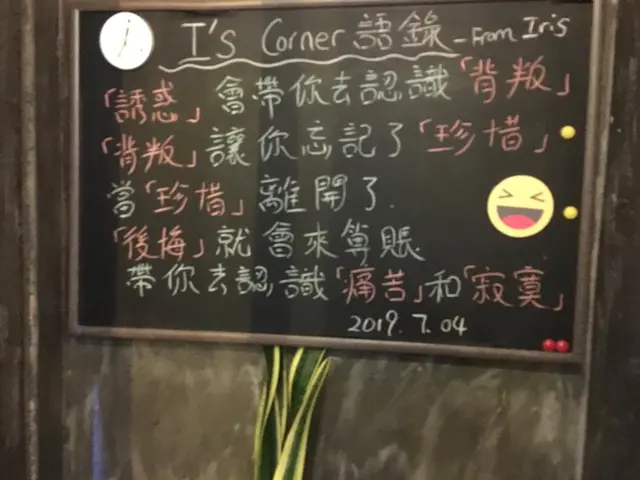 i.
I's Corner 語錄 - From Iris
「誘惑」會帶你去認識「背叛」
「背叛」讓你忘記了「珍惜」
當「珍惜」離開了.
「後悔」就會來算賬
帶你去認識「痛苦」和「寂寞」
2019.7.04